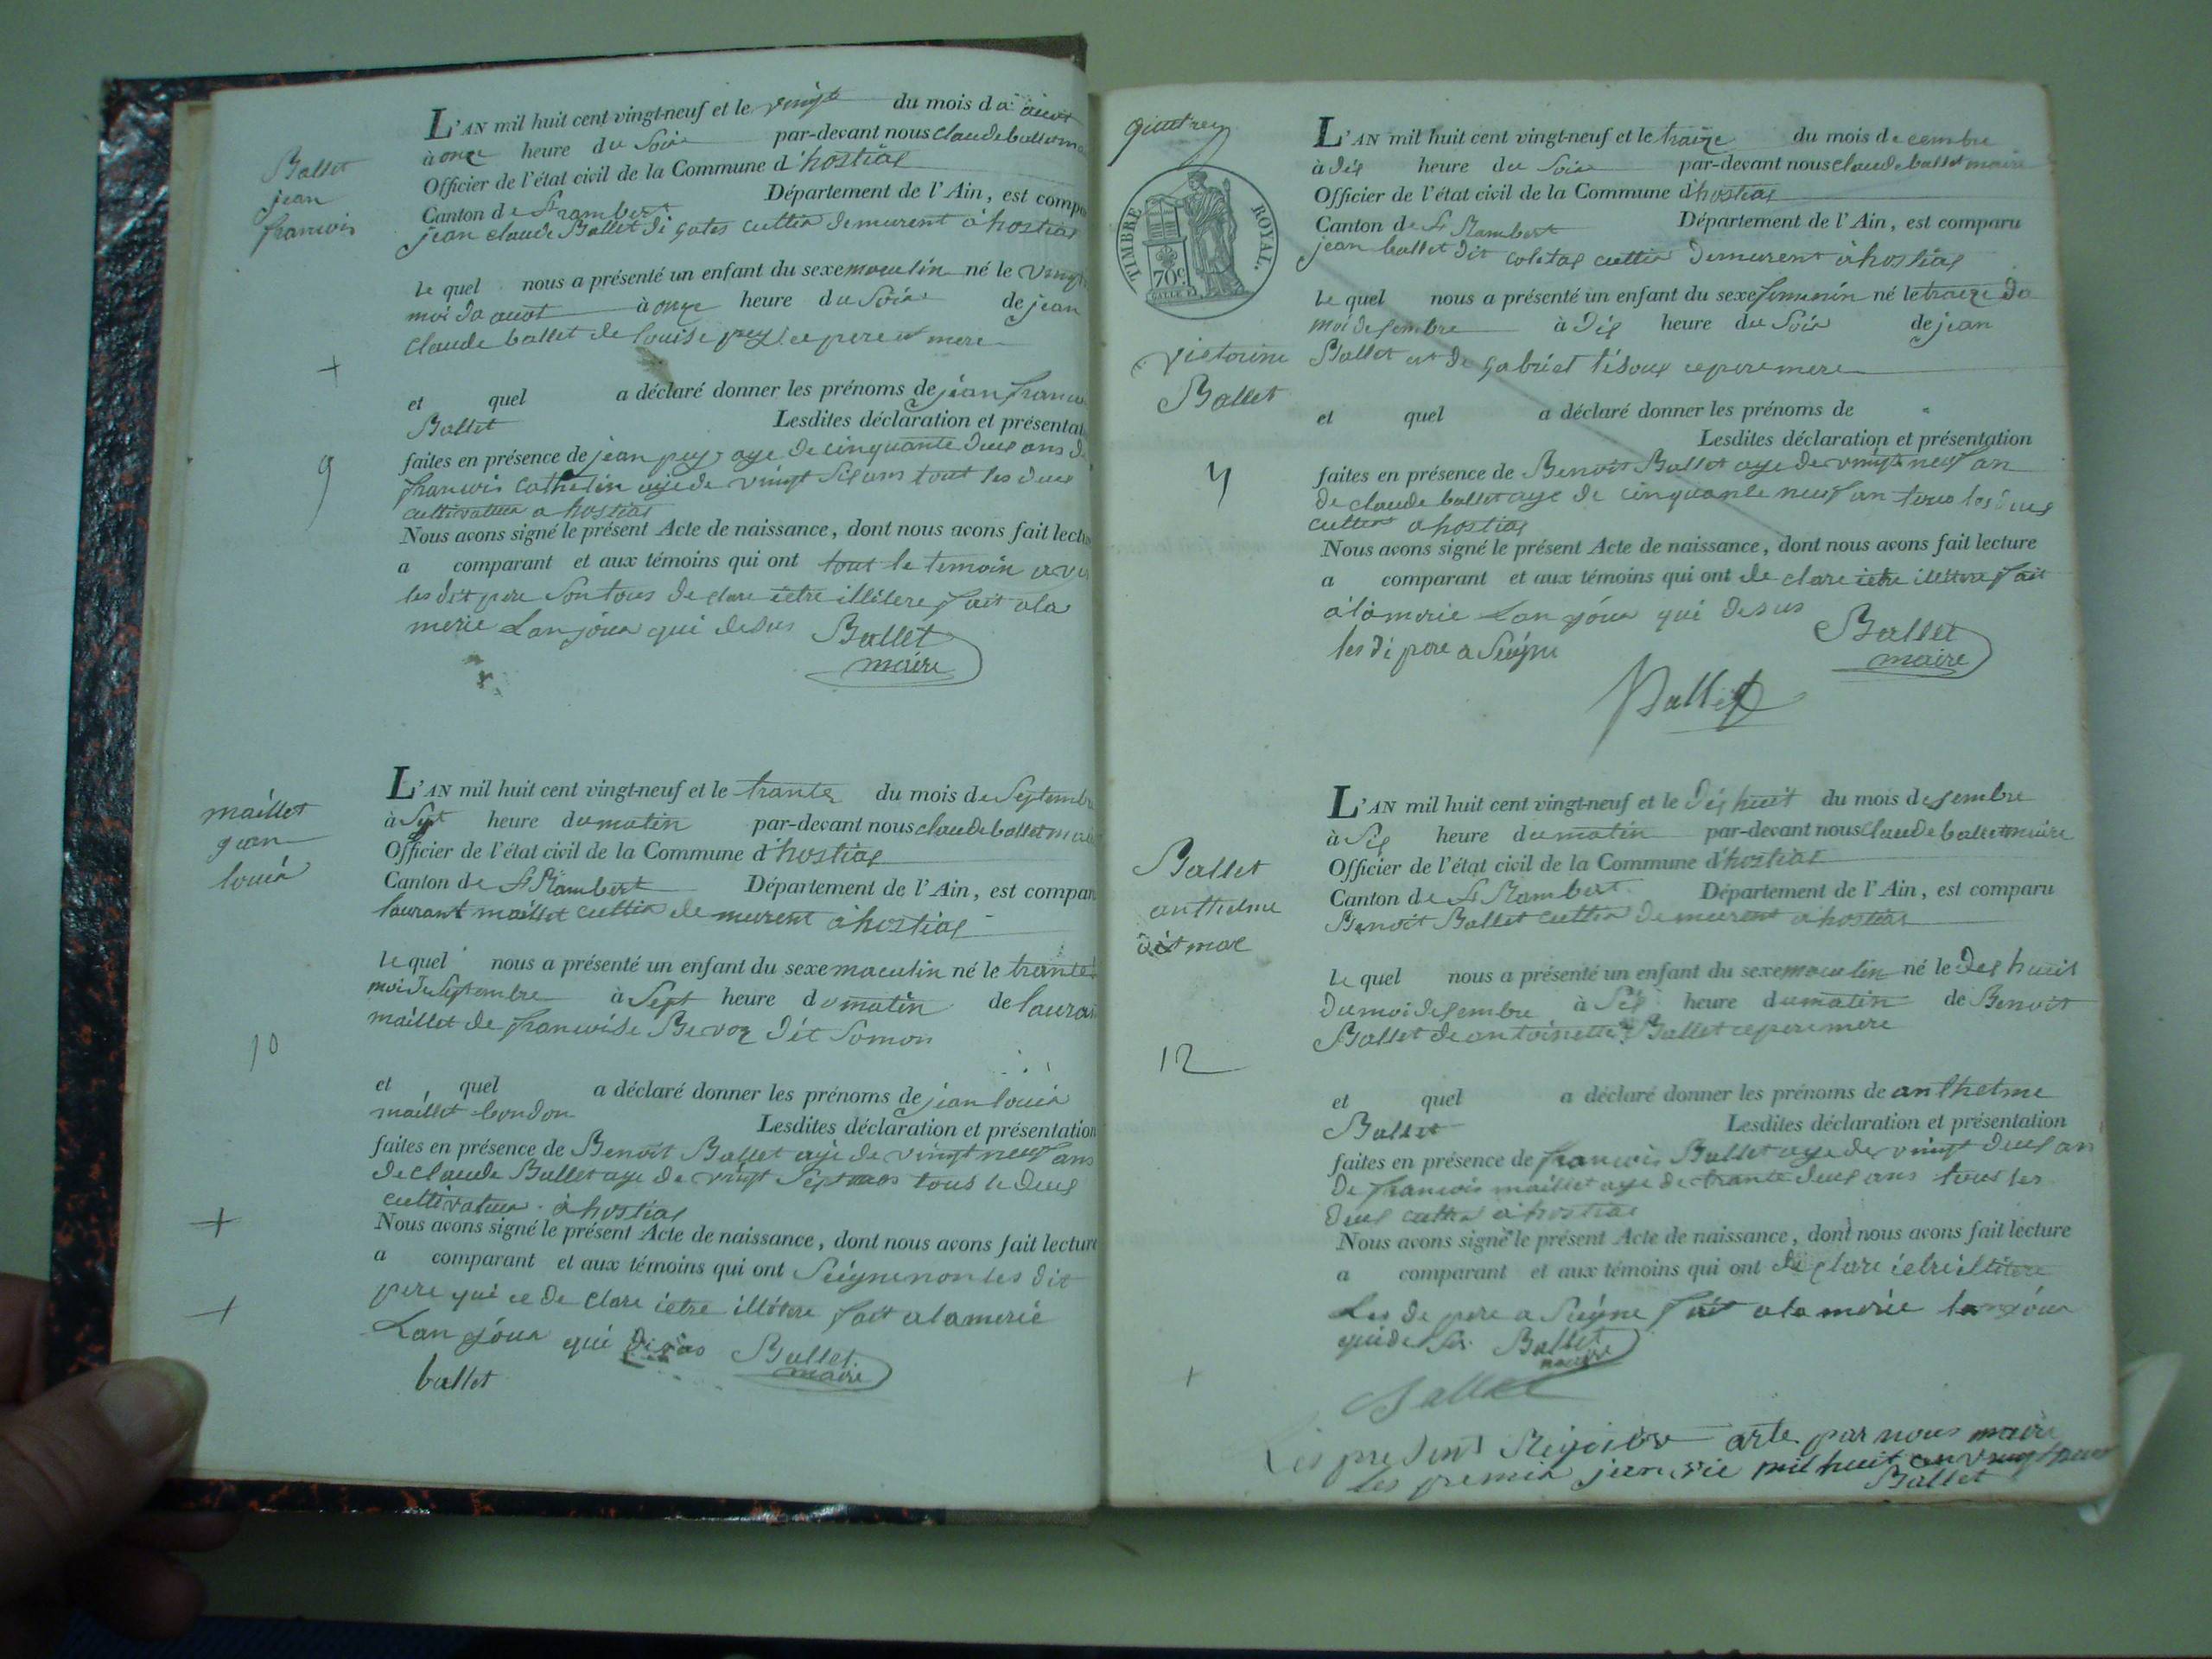 Ballet
jean
francois
L'AN mil huit cent vingt-neuf et le vingt du mois da auot
à onze heure du Soir par-devant nous claude ballet
Officier de l'état civil de la Commune d'hostias
Canton de St rambert Département de l'Ain, est compa
jean claude Ballet di gates culti demurent à hostias
le quel nous a présenté un enfant du sexe maculin né le vingt
moi da auot à onze heure du Soir de jean
claude ballet de louise pey ce pere et mere
et quel a déclaré donner les prénoms de jean francoi
Ballet Lesdites déclaration et présentat
faites en présence de jean pey aye de cinquante deus ans de
francois cathelin aye de vingt Sis ans tout les deus
cultivateur a hostias
9
Nous avons signé le présent Acte de naissance, dont nous avons fait lectu
a comparant et aux témoins qui ont tout le temoin ave
les dit pere Son tous de clare ietre illitere fait a la
merie Lan jour qui desus Ballet
maire
maillet
jean
louis
L'AN mil huit cent vingt-neuf et le trante du mois de Septembre
à Sept heure du matin par-devant nous claude ballet maire
Officier de l'état civil de la Commune d'hostias
Canton de St Rambert Département de l'Ain, est compar
laurant maillet culti de murent à hostias
le quel nous a présenté un enfant du sexe maculin né le trante
moi de Septambre à Sept heure du matin de lauran
maillet de francoise Bevoz dit Somon
10
et quel a déclaré donner les prénoms de jean louis
maillet bondon Lesdites déclaration et présentation
faites en présence de Benoit Ballet aye de vingt neuf ans
de claude Ballet aye de vingt Sept ans tous le deus
cultivateur à hostias
Nous avons signé le présent Acte de naissance, dont nous avons fait lecture
a comparant et aux témoins qui ont Seigne non les dit
pere qui ce de clare ietre illitere fait a la merie
Lan jour qui Ballet
maire
ballet
TIMBRE ROYAL.
70c.
L'AN mil huit cent vingt-neuf et le traize du mois de cembre
à dis heure du Soir par-devant nous claude ballet maire
Officier de l'état civil de la Commune d'hostias
Canton de St Rambert Département de l'Ain, est comparu
jean ballet dit colitas culti demurent à hostias
le quel nous a présenté un enfant du sexe feminin né le traize da
moi desembre à Dis heure du Soir de jean
victorine
Ballet
Ballet et de gabriel tisoux ce pere mere
et quel a déclaré donner les prénoms de
Lesdites déclaration et présentation
faites en présence de Benoit Ballet aye de vingt neuf an
de claude ballet aye de cinquante neuf an tous les deus
culti a hostias
Nous avons signé le présent Acte de naissance, dont nous avons fait lecture
a comparant et aux témoins qui ont de clare ietre illitere fait
à la merie Lan jour qui desus
les di pere a Seigne Ballet
maire
Ballet
Ballet
anthelme
L'AN mil huit cent vingt-neuf et le Dis huit du mois desembre
à Sis heure du matin par-devant nous claude ballet maire
Officier de l'état civil de la Commune d'hostias
Canton de St Rambert Département de l'Ain, est comparu
Benoit Ballet culti demeurent a hostias
le quel nous a présenté un enfant du sexe maculin né le Dis huit
du moi desembre à Sis heure du matin de Benoit
Ballet de antoinette Ballet ce pere mere
12
et quel a déclaré donner les prénoms de anthelme
Ballet Lesdites déclaration et présentation
faites en présence de francois Ballet aye de vingt deus an
De francois maillet aye de trante deus ans tous les
deus culti a hostias
Nous avons signé le présent Acte de naissance, dont nous avons fait lecture
a comparant et aux témoins qui ont de clare ietre illitere
Les de pere a Seigne fait a la merie lan jour
qui de Ballet
maire
Ballet
arte par nous maire
les premier mil huit
Ballet